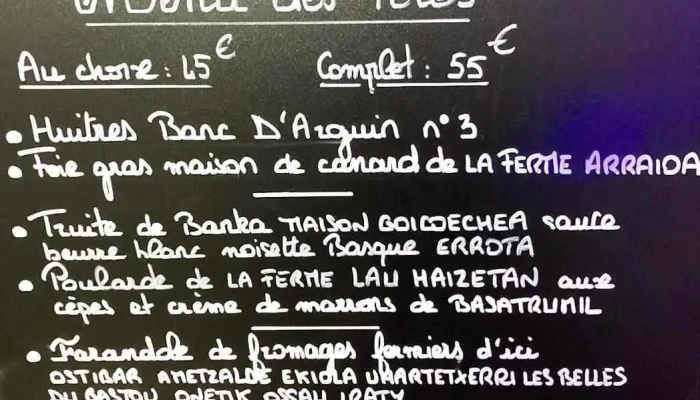 des
Au choix : 45€ Complet : 55€
• Huitres Banc D'Arguin n°3
• Foie gras maison de canard de LA FERME ARRAIDA
• Truite de Banka MAISON GOICOECHEA sauce
beurre blanc noisette Basque ERROTA
• Poularde de LA FERME LAU HAIZETAN aux
cèpes et crème de marrons de BASATRUMIL
• Farandole de fromages fermiers d'ici
OSTIBAR AMETZALDE EKIOLA UHARTETXERRI LES BELLES
OSSAU IRATY